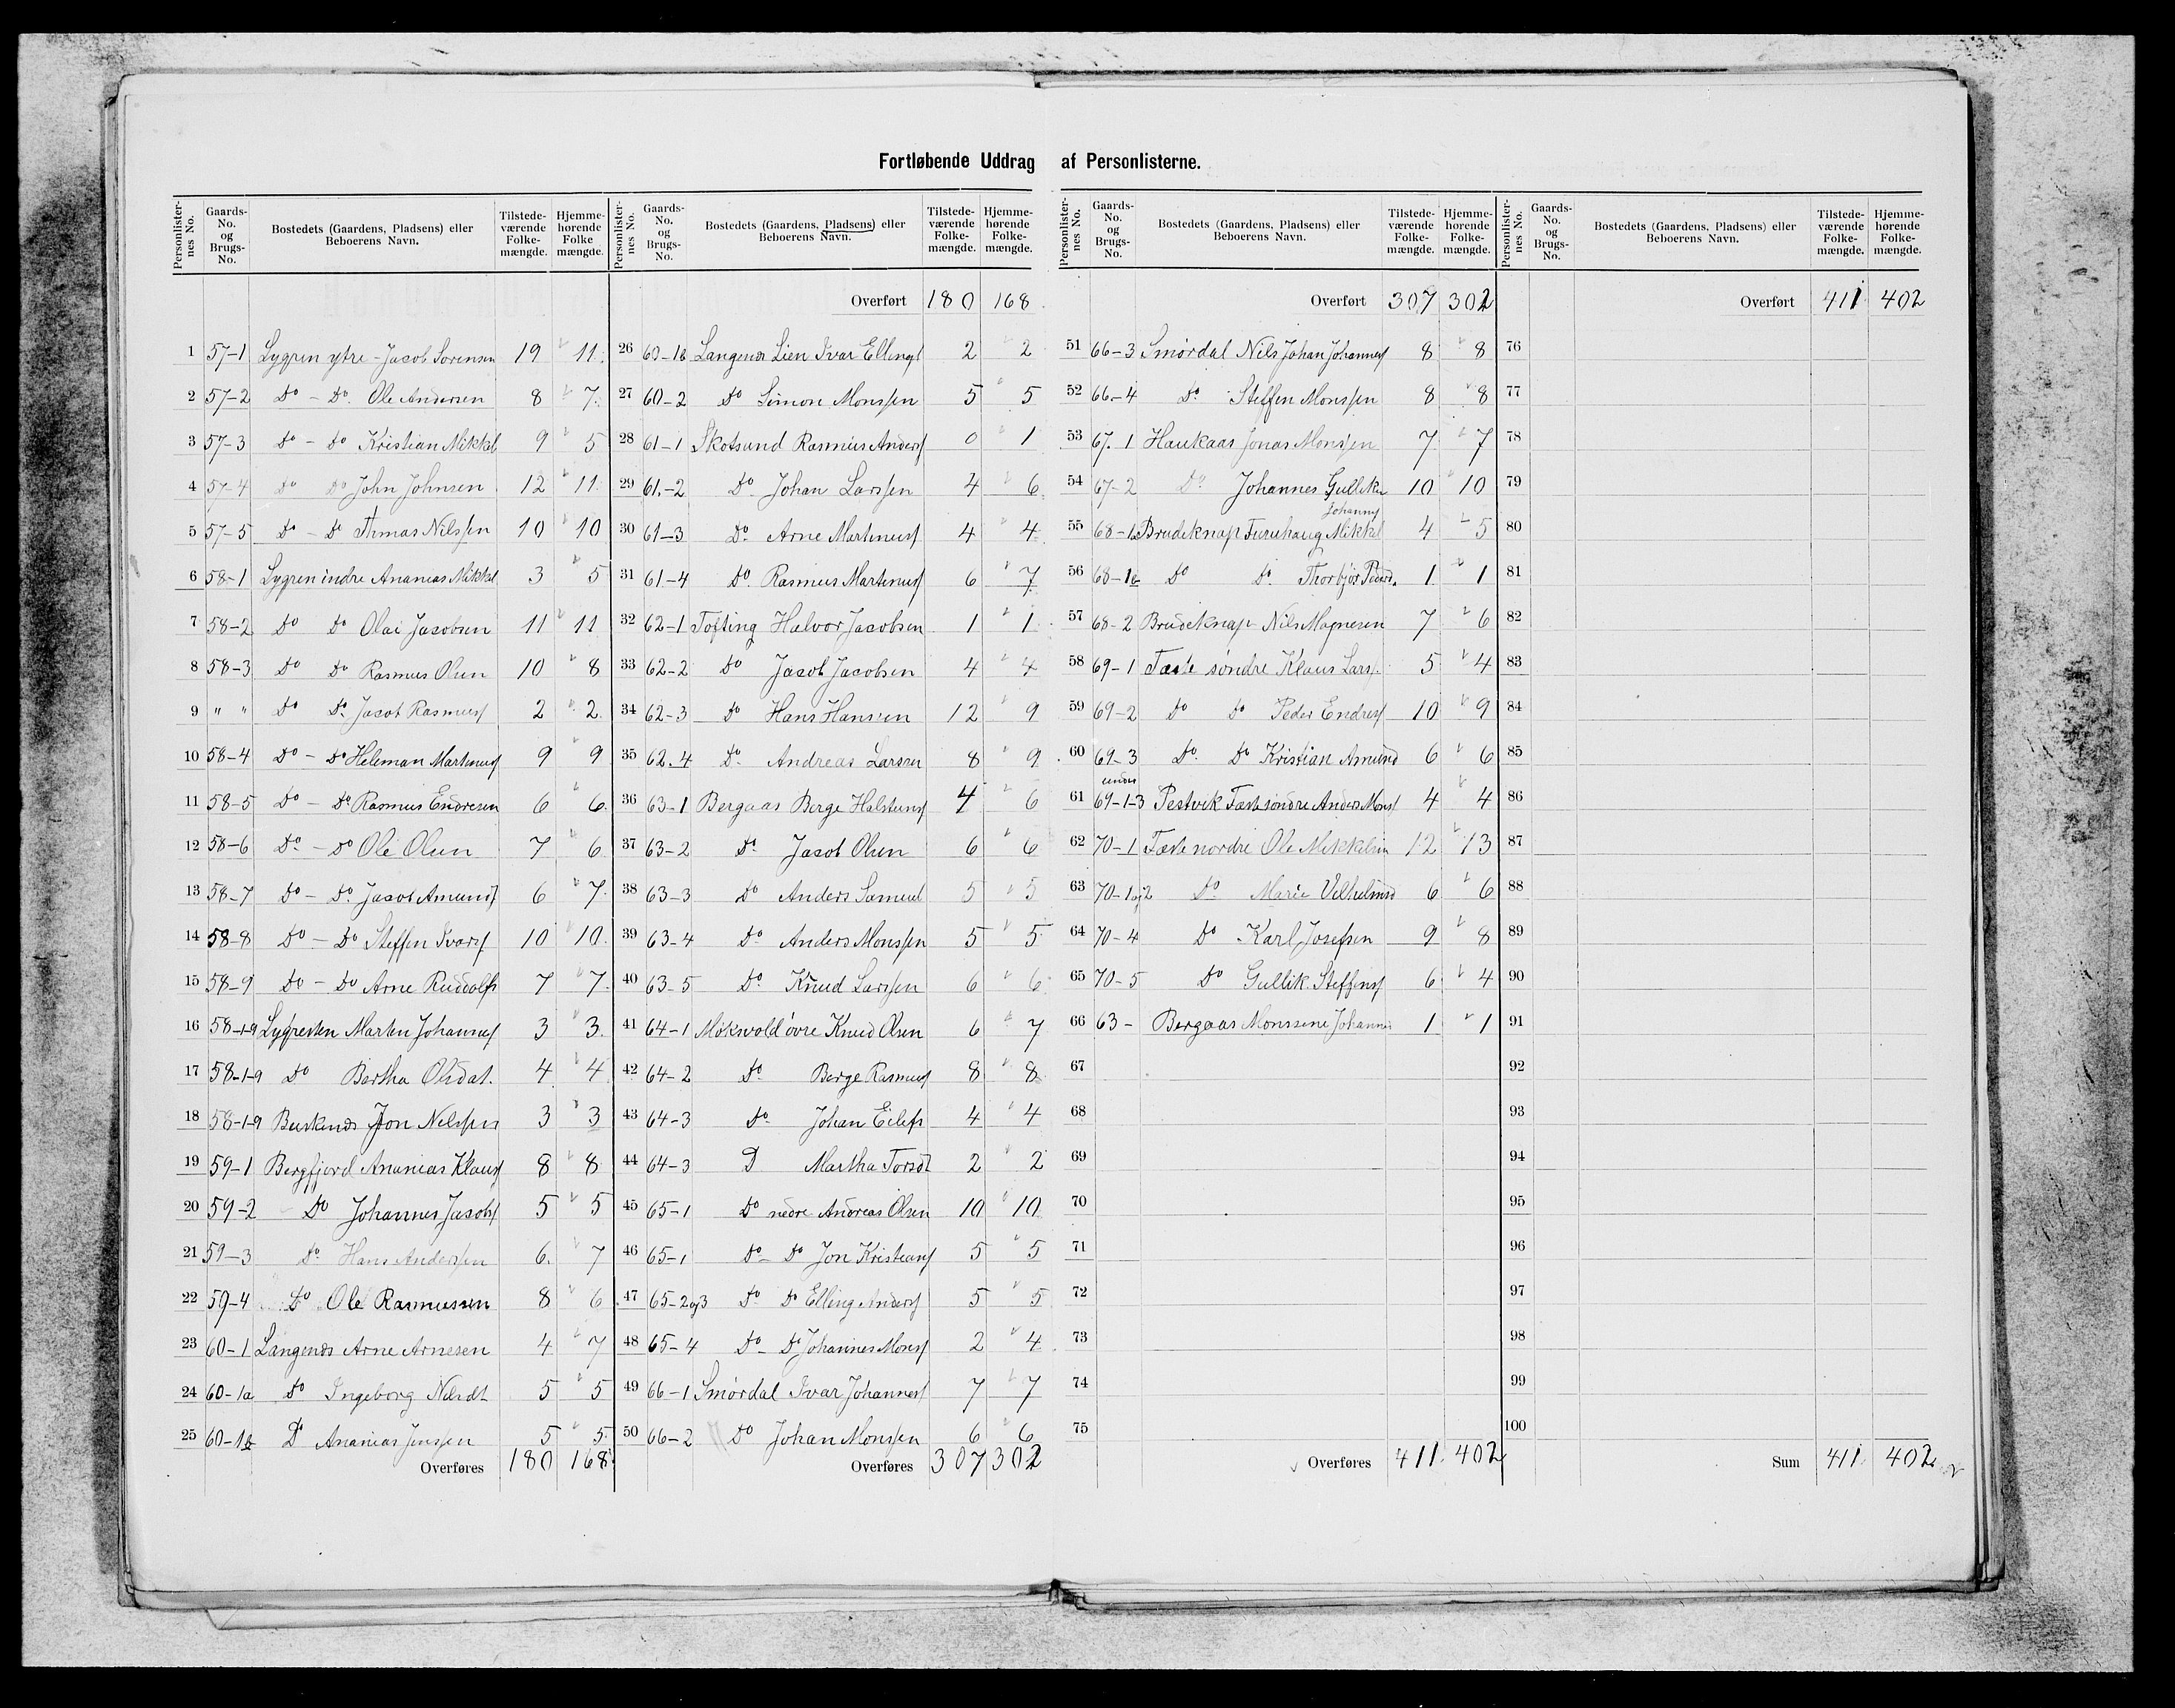 Fortløbende Uddrag af Personlisterne.
Personlister-nes No. | Gaards-No. og Brugs-No. | Bostedets (Gaardens, Pladsens) eller Beboerens Navn. | Tilstede-værende Folke-mængde. | Hjemme-hørende Folke mængde.
1 57-1 Lygren ytre - Jacob Sørensen 19 11
2 57-2 Do - Do Ole Andersen 8 7
3 57-3 Do - Do Kristian Mikkel 9 5
4 57-4 Do Do John Johnsen 12 11
5 57-5 Do - Do Thmas Nilssen 10 10
6 58-1 Lygren indre Ananias Mikkel 3 5
7 58-2 Do Do Olai Jacobsen 11 11
8 58-3 Do Do Rasmus Olsen 10 8
9 " " Do Do Jacob Rasmus 2 2
10 58-4 Do - Do Heleman Martinus 9 9
11 58-5 Do - Do Rasmus Endresen 6 6
12 58-6 Do - Do Ole Olsen 7 6
13 58-7 Do - Do Jacob Amunds 6 7
14 58-8 Do - Do Steffen Ivars 10 10
15 58-9 Do - Do Arne Ruddolfs 7 7
16 58-1-9 Lygresten Marten Johannes 3 3
17 58-1-9 Do Bertha Olsdat. 4 4
18 58-1-9 Buskenes Jon Nelssen 3 3
19 59-1 Bergfjord Ananias Klaus 8 8
20 59-2 Do Johannes Jacobs 5 5
21 59-3 Do Hans Anderssen 6 7
22 59-4 Do Ole Rasmussen 8 6
23 60-1 Langenes Arne Arnesen 4 7
24 60-1a Do Ingeborg Nilsdt 5 5
25 60-1b Do Ananias Jenssen 5 5
Overføres 180 168
Personlister-nes No. | Gaards-No. og Brugs-No. | Bostedets (Gaardens, Pladsens) eller Beboerens Navn. | Tilstede-værende Folke-mængde. | Hjemme-hørende Folke-mængde.
Overført 180 168
26 60-1b Langenes Lien Ivar Ellings 2 2
27 60-2 Do Simon Monssen 5 5
28 61-1 Skotsund Rasmus Anders 0 1
29 61-2 Do Johan Larssen 4 6
30 61-3 Do Arne Martinus 4 4
31 61-4 Do Rasmus Martinus 6 7
32 62-1 Tofting Halvor Jacobsen 1 1
33 62-2 Do Jacob Jacobsen 4 4
34 62-3 Do Hans Hansen 12 9
35 62.4 Do Andreas Larsen 8 9
36 63-1 Bergaas Berge Halstens 4 6
37 63-2 Do Jacob Olsen 6 6
38 63-3 Do Anders Samuel 5 5
39 63-4 Do Anders Monssen 5 5
40 63-5 Do Knud Larssen 6 6
41 64-1 Møksvold øvre Knud Olsen 6 7
42 64-2 Do Berge Rasmus 8 8
43 64-3 Do Johan Eilefs 4 4
44 64-3 D Martha Torsdt 2 2
45 65-1 Do nedre Andreas Olsen 10 10
46 65-1 Do - Do Jon Kristians 5 5
47 65-2og3 Do Do Elling Anders 5 5
48 65-4 Do - Do Johannes Mons 2 4
49 66-1 Smørdal Ivar Johannes 7 7
50 66-2 Do Johan Monssen 6 6
Overføres 307 302
Personlister-nes No. | Gaards-No. og Brugs-No. | Bostedets (Gaardens, Pladsens) eller Beboerens Navn. | Tilstede-værende Folke-mængde. | Hjemme-hørende Folke-mængde.
Overført 307 302
51 66-3 Smørdal Nils Johan Johannes 8 8
52 66-4 Do Steffen Monssen 8 8
53 67.1 Haukaas Jonas Monssen 7 7
54 67-2 Do Johannes Gulliksen 10 10
Johannes
55 68-1a Brudeknap Furuhaug Mikkel 4 5
56 68-1b Do Do Thorbjør Pedersd. 1 1
57 68-2 Brudeknap Nils Magnesen 7 6
58 69-1 Taste søndre Klaus Lars. 5 4
59 69-2 Do Do Peder Endres 10 9
60 69-3 Do Do Kristian Amund 6 6
under
61 69-1-3 Pestvik Taste søndre Anders Mons 4 4
62 70-1 Taste nordre Ole Mikkelsen 12 13
63 70-1og2 Do Marie Vilhelmsd 6 6
64 70-4 Do Karl Josefsen 9 8
65 70-5 Do Gullik Steffens 6 4
66 63- Bergaas Monssene Johannes 1 1
67
68
69
70
71
72
73
74
75
Overføres 411 402
Personlister-nes No. | Gaards-No. og Brugs-No. | Bostedets (Gaardens, Pladsens) eller Beboerens Navn. | Tilstede-værende Folke-mængde. | Hjemme-hørende Folke-mængde.
Overført 411 402
76
77
78
79
80
81
82
83
84
85
86
87
88
89
90
91
92
93
94
95
96
97
98
99
100
Sum 411 402